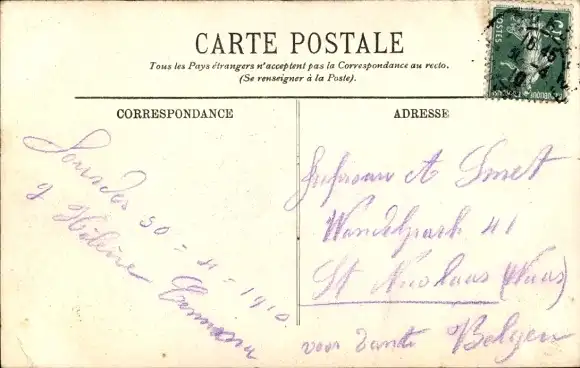 CARTE POSTALE
Tous les Pays étrangers n'acceptent pas la Correspondance au recto.
(Se renseigner à la Poste).
CORRESPONDANCE
ADRESSE
Lourdes 30 = 4 = 1910
Hélène Germana
A Smet
Wandelpark 41
St Nicolaas (Waas)
voor Tante Belgen